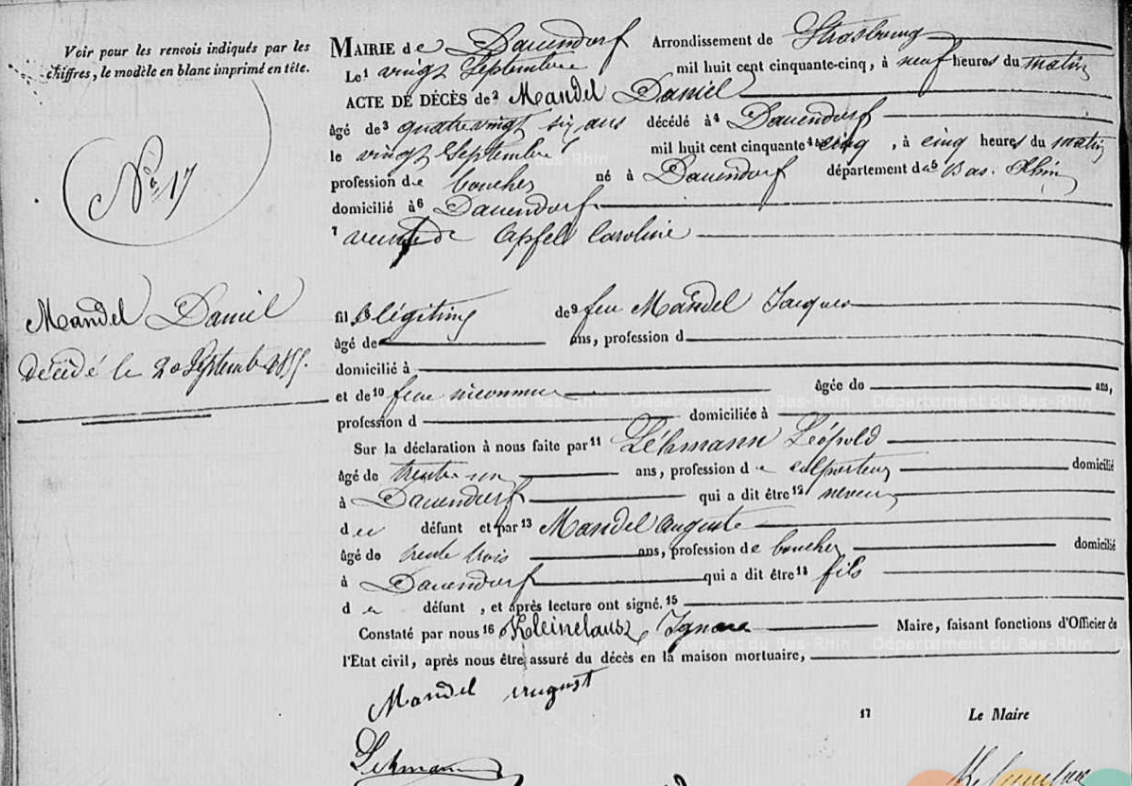 Voir pour les renvois indiqués par les
chiffres, le modèle en blanc imprimé en tête.
MAIRIE de Dauendorf Arrondissement de Strasbourg
Le¹ vingt Septembre mil huit cent cinquante-cinq, à neuf heures du matin
ACTE DE DÉCÈS de² Mandel Daniel
âgé de³ quatrevingt six ans décédé à⁴ Dauendorf
le vingt Septembre mil huit cent cinquante cinq, à cinq heures du matin
profession de boucher né à Dauendorf département du⁵ Bas-Rhin
domicilié à⁶ Dauendorf
⁷ veuf de Apfel Caroline
Nº 17
Mandel Daniel
décédé le 20 Septembre 1855.
fils⁸ légitime de⁹ feu Mandel Jacques
âgé de ans, profession d
domicilié à
et de¹⁰ feue inconnue âgée de ans,
profession d domiciliée à
Sur la déclaration à nous faite par¹¹ Léhmann Léopold
âgé de trente un ans, profession de colporteur domicilié
à Dauendorf qui a dit être¹² neveu
du défunt et par¹³ Mandel Auguste
âgé de trente trois ans, profession de boucher domicilié
à Dauendorf qui a dit être¹⁴ fils
du défunt, et après lecture ont signé.¹⁵
Constaté par nous¹⁶ Kleinclausz, Ignace Maire, faisant fonctions d'Officier de
l'Etat civil, après nous être assuré du décès en la maison mortuaire,
Mandel August
¹⁷ Le Maire
Lehmann
Département du Bas-Rhin